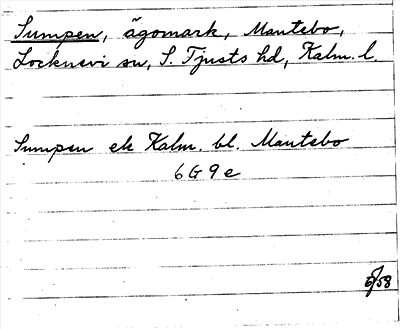 Sumpen, ägomark, Mantebo,
Locknevi sn, S. Tjusts hd, Kalm. l.
Sumpen ek Kalm. bl. Mantebo
6 G 9 e
6/58